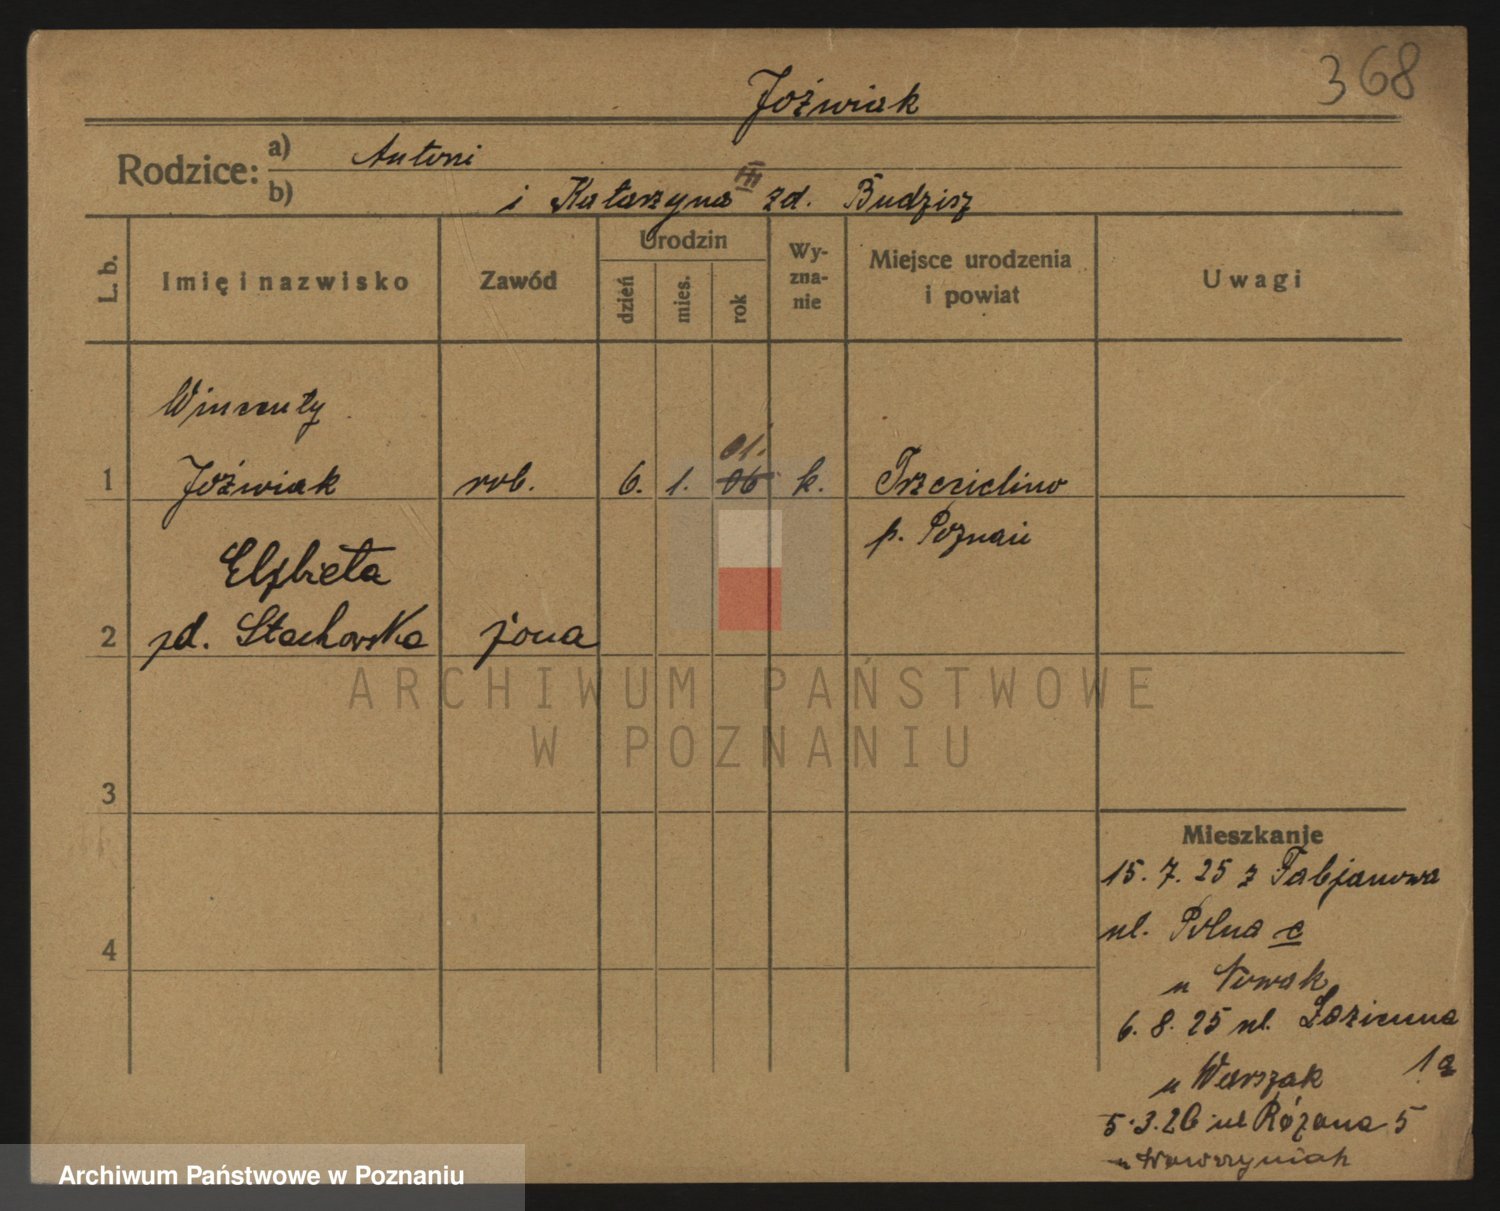 368
Joźwiak
Rodzice: a) Antoni
b) i Katarzyna III zd. Budzisz
L. b.
Imię i nazwisko
Zawód
Urodzin
dzień
mies.
rok
Wy-
zna-
nie
Miejsce urodzenia
i powiat
Uwagi
Wincenty
01.
1 Joźwiak rob. 6. 1. 06 k. Trzcielino
p. Poznań
Elzbieta
2 zd. Stachowska żona
3
4
Mieszkanie
15. 7. 25 z Fabjanowa
ul. Polna c
u Nowak
6. 8. 25 ul. Łazienna
1a
u Warszak
5.3.26 ul Różana 5
u Wawrzyniak
ARCHIWUM PAŃSTWOWE
W POZNANIU
Archiwum Państwowe w Poznaniu